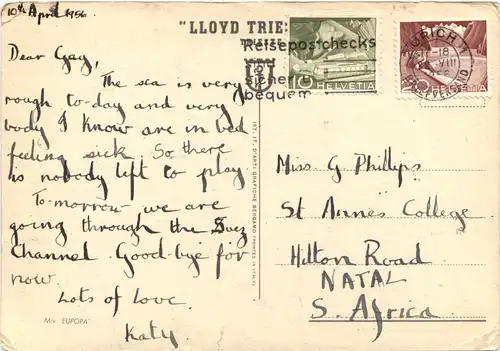 10th April 1956
"LLOYD TRIE
Reisepostchecks
sicher
bequem
10 HELVETIA
HELVETIA
ZURICH
-18
VIII
Dear Gay,
The sea is very
rough to-day and every
body I know are in bed
feeling sick. So there
is nobody left to play
To-morrow we are
going through the Suez
Channel. Good-bye for
now
Lots of love.
Katy.
M/v "EUROPA"
IST. IT. D'ARTI GRAFICHE BERGAMO (PRINTED IN ITALY)
Miss G Phillips
St Annes College
Hilton Road
NATAL
S. Africa